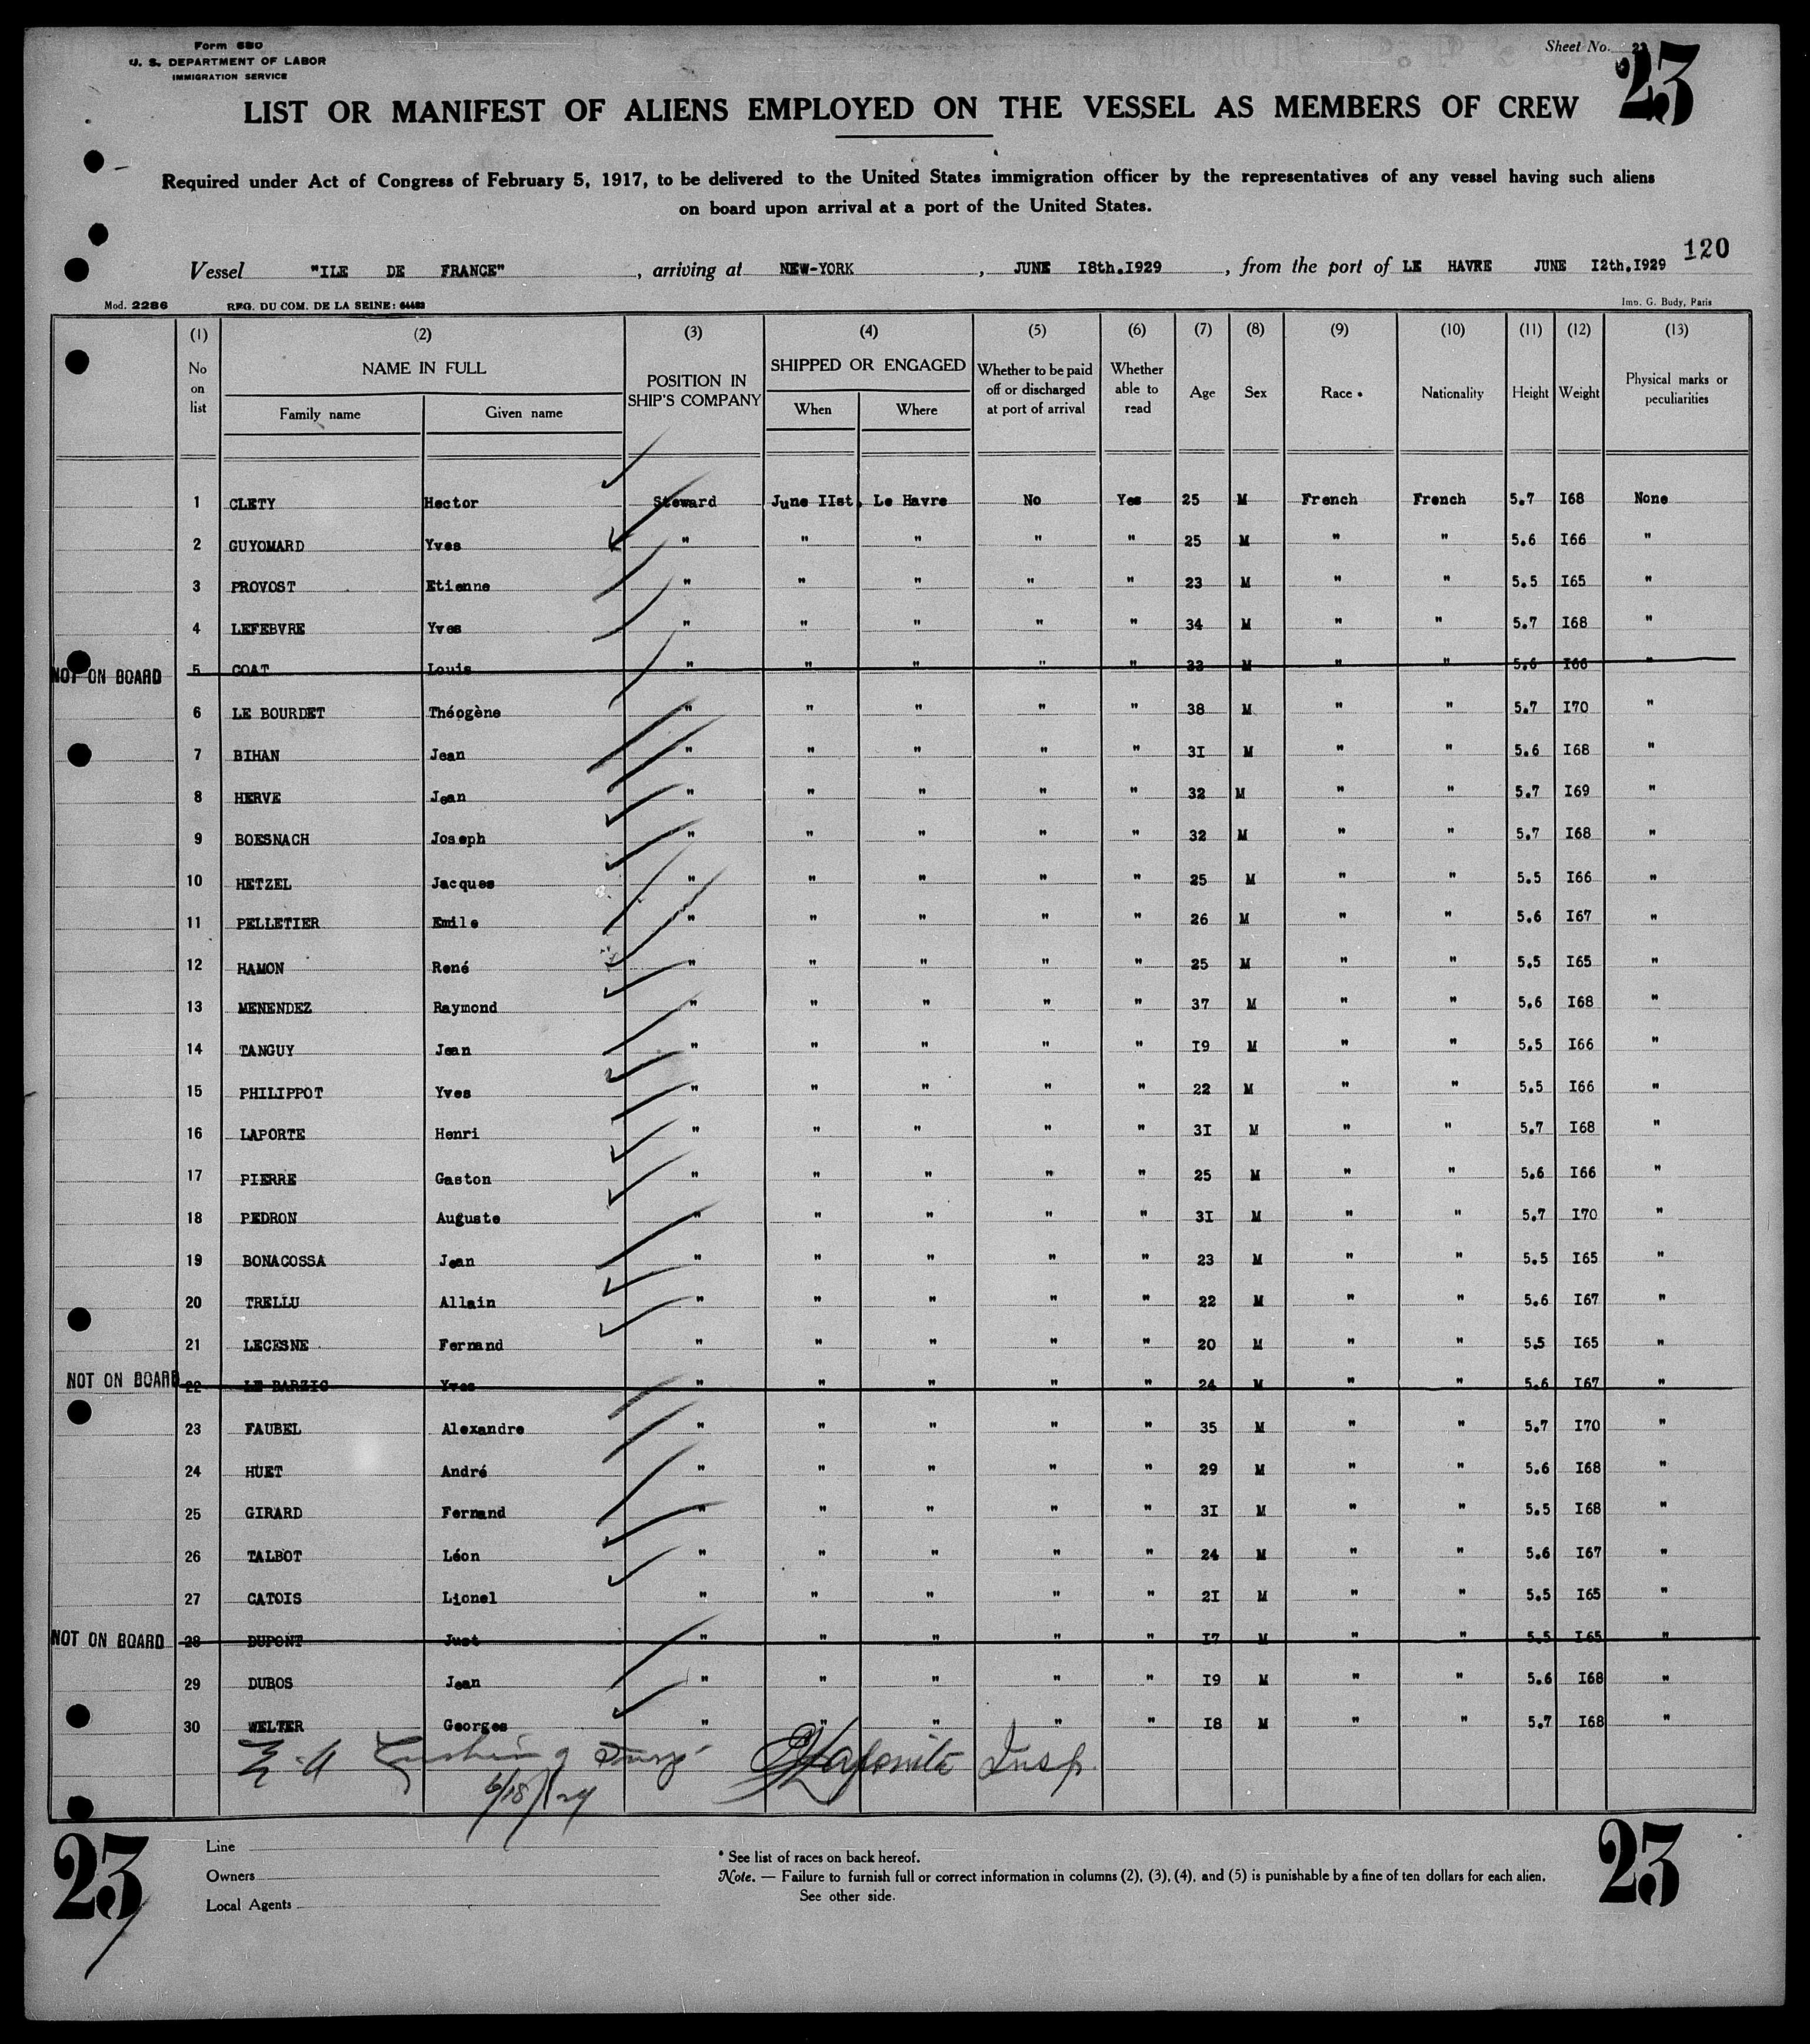 Form 680
U. S. DEPARTMENT OF LABOR
IMMIGRATION SERVICE
Sheet No. 23
23
LIST OR MANIFEST OF ALIENS EMPLOYED ON THE VESSEL AS MEMBERS OF CREW
Required under Act of Congress of February 5, 1917, to be delivered to the United States immigration officer by the representatives of any vessel having such aliens
on board upon arrival at a port of the United States.
120
Vessel "ILE DE FRANCE", arriving at NEW-YORK, JUNE I8th.I929, from the port of LE HAVRE JUNE I2th.I929
Mod. 2286 REG. DU COM. DE LA SEINE: Imp. G. Budy, Paris
(1) (2) (3) (4) (5) (6) (7) (8) (9) (10) (11) (12) (13)
No on list NAME IN FULL POSITION IN SHIP'S COMPANY SHIPPED OR ENGAGED Whether to be paid off or discharged at port of arrival Whether able to read Age Sex Race • Nationality Height Weight Physical marks or peculiarities
Family name Given name When Where
1 CLETY Hector Steward June IIst, Le Havre No Yes 25 M French French 5.7 I68 None
2 GUYOMARD Yves " " " " " 25 M " " 5.6 I66 "
3 PROVOST Etienne " " " " " 23 M " " 5.5 I65 "
4 LEFEBVRE Yves " " " " " 34 M " " 5.7 I68 "
NOT ON BOARD 5 GOAT Louis " " " " " 33 M " " 5.6 I66 "
6 LE BOURDET Théogène " " " " " 38 M " " 5.7 I70 "
7 BIHAN Jean " " " " " 3I M " " 5.6 I68 "
8 HERVE Jean " " " " " 32 M " " 5.7 I69 "
9 BOESNACH Joseph " " " " " 32 M " " 5.7 I68 "
10 HETZEL Jacques " " " " " 25 M " " 5.5 I66 "
11 PELLETIER Emile " " " " " 26 M " " 5.6 I67 "
12 HAMON René " " " " " 25 M " " 5.5 I65 "
13 MENENDEZ Raymond " " " " " 37 M " " 5.6 I68 "
14 TANGUY Jean " " " " " I9 M " " 5.5 I66 "
15 PHILIPPOT Yves " " " " " 22 M " " 5.5 I66 "
16 LAPORTE Henri " " " " " 3I M " " 5.7 I68 "
17 PIERRE Gaston " " " " " 25 M " " 5.6 I66 "
18 PEDRON Auguste " " " " " 3I M " " 5.7 I70 "
19 BONACOSSA Jean " " " " " 23 M " " 5.5 I65 "
20 TRELLU Allain " " " " " 22 M " " 5.6 I67 "
21 LECESNE Fernand " " " " " 20 M " " 5.5 I65 "
NOT ON BOARD 22 LE BARZIC Yves " " " " " 24 M " " 5.6 I67 "
23 FAUBEL Alexandre " " " " " 35 M " " 5.7 I70 "
24 HUET André " " " " " 29 M " " 5.6 I68 "
25 GIRARD Fernand " " " " " 3I M " " 5.5 I68 "
26 TALBOT Léon " " " " " 24 M " " 5.6 I67 "
27 CATOIS Lionel " " " " " 2I M " " 5.5 I65 "
NOT ON BOARD 28 DUPONT Just " " " " " I7 M " " 5.5 I65 "
29 DUBOS Jean " " " " " I9 M " " 5.6 I68 "
30 WELTER Georges " " " " " I8 M " " 5.7 I68 "
Insp.
6/18/29
23
23
Line
Owners
Local Agents
* See list of races on back hereof.
Note. — Failure to furnish full or correct information in columns (2), (3), (4), and (5) is punishable by a fine of ten dollars for each alien.
See other side.